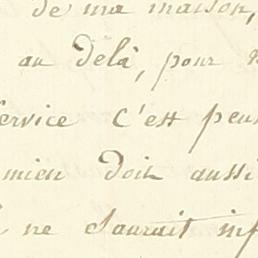 de ma maison,
au delà, pour
service c'est
mien doit aussi
ne sauroit